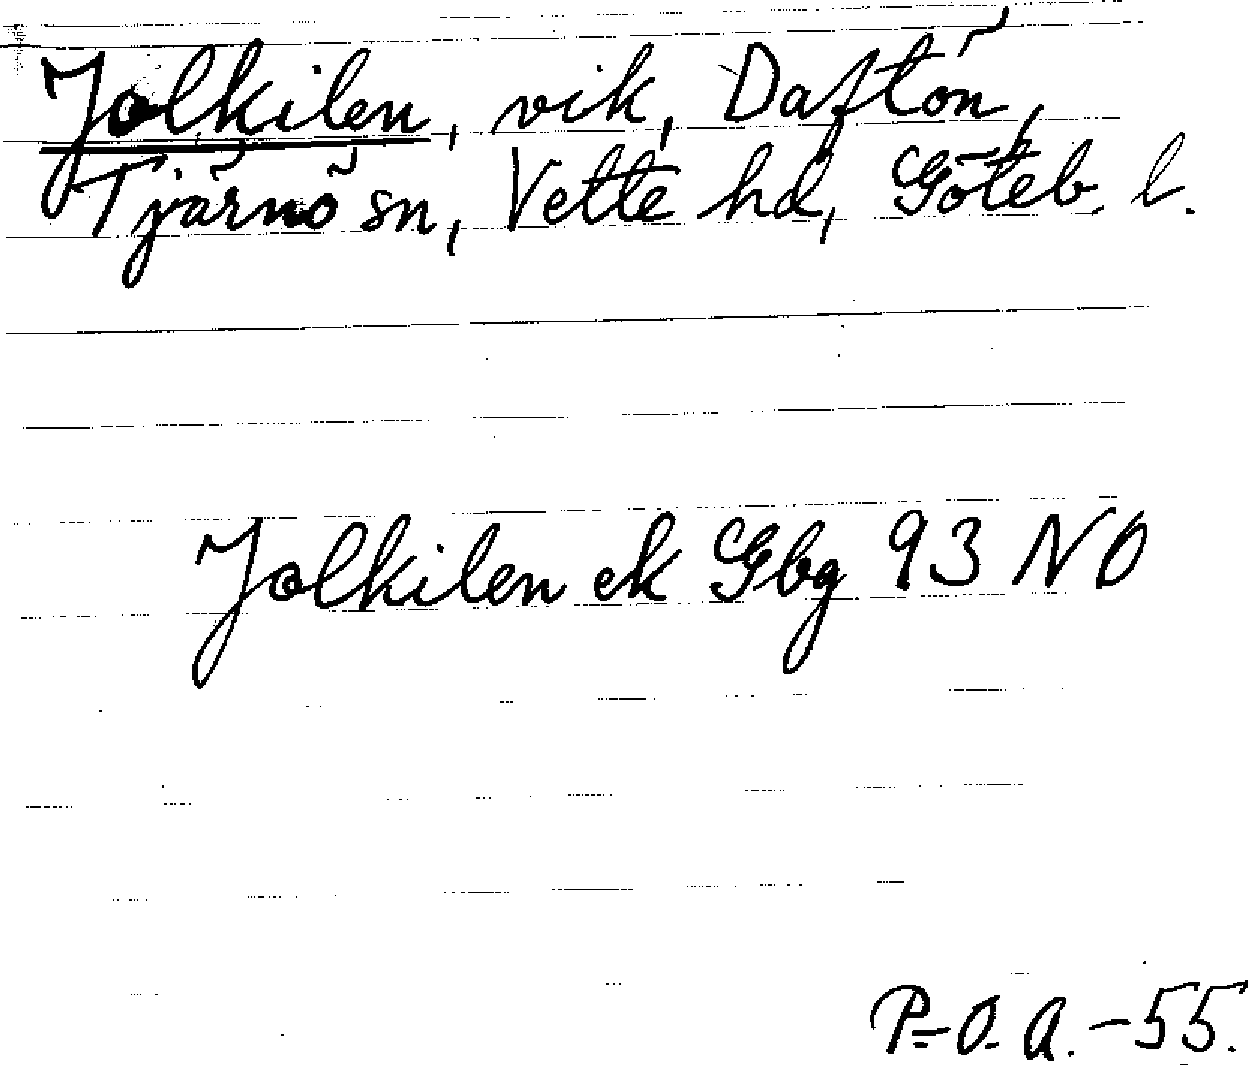 Jolkilen, vik, Daftön,
Tjärnö sn, Vette hd, Göteb. l.
Jolkilen ek Gbg 93 NO
P-O. A. -55.